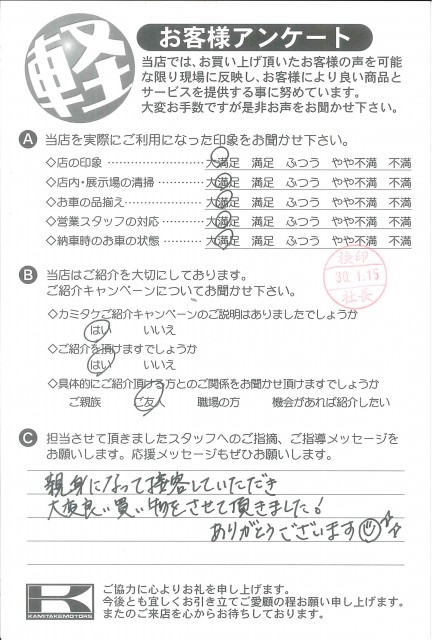 軽
お客様アンケート
当店では、お買い上げ頂いたお客様の声を可能
な限り現場に反映し、お客様により良い商品と
サービスを提供する事に努めています。
大変お手数ですが是非お声をお聞かせ下さい。
A 当店を実際にご利用になった印象をお聞かせ下さい。
◇店の印象 ………………… 大満足 満足 ふつう やや不満 不満
◇店内・展示場の清掃 ……… 大満足 満足 ふつう やや不満 不満
◇お車の品揃え …………… 大満足 満足 ふつう やや不満 不満
◇営業スタッフの対応 ……… 大満足 満足 ふつう やや不満 不満
◇納車時のお車の状態 ……… 大満足 満足 ふつう やや不満 不満
検印
30.1.15
社長
B 当店はご紹介を大切にしてあります。
ご紹介キャンペーンについてお聞かせ下さい。
◇カミタケご紹介キャンペーンのご説明はありましたでしょうか
はい いいえ
◇ご紹介を頂けますでしょうか
はい いいえ
◇具体的にご紹介頂ける方とのご関係をお聞かせ頂けますでしょうか
ご親族 ご友人 職場の方 機会があれば紹介したい
C 担当させて頂きましたスタッフへのご指摘、ご指導メッセージを
お願いします。応援メッセージもぜひお願いします。
親身になって接客していただき
大変良い買い物をさせて頂きました!
ありがとうございます
K
KAMITAKEMOTORS
ご協力に心よりお礼を申し上げます。
今後とも宜しくお引き立てご愛顧の程お願い申し上げます。
またのご来店を心からお待ちしております。